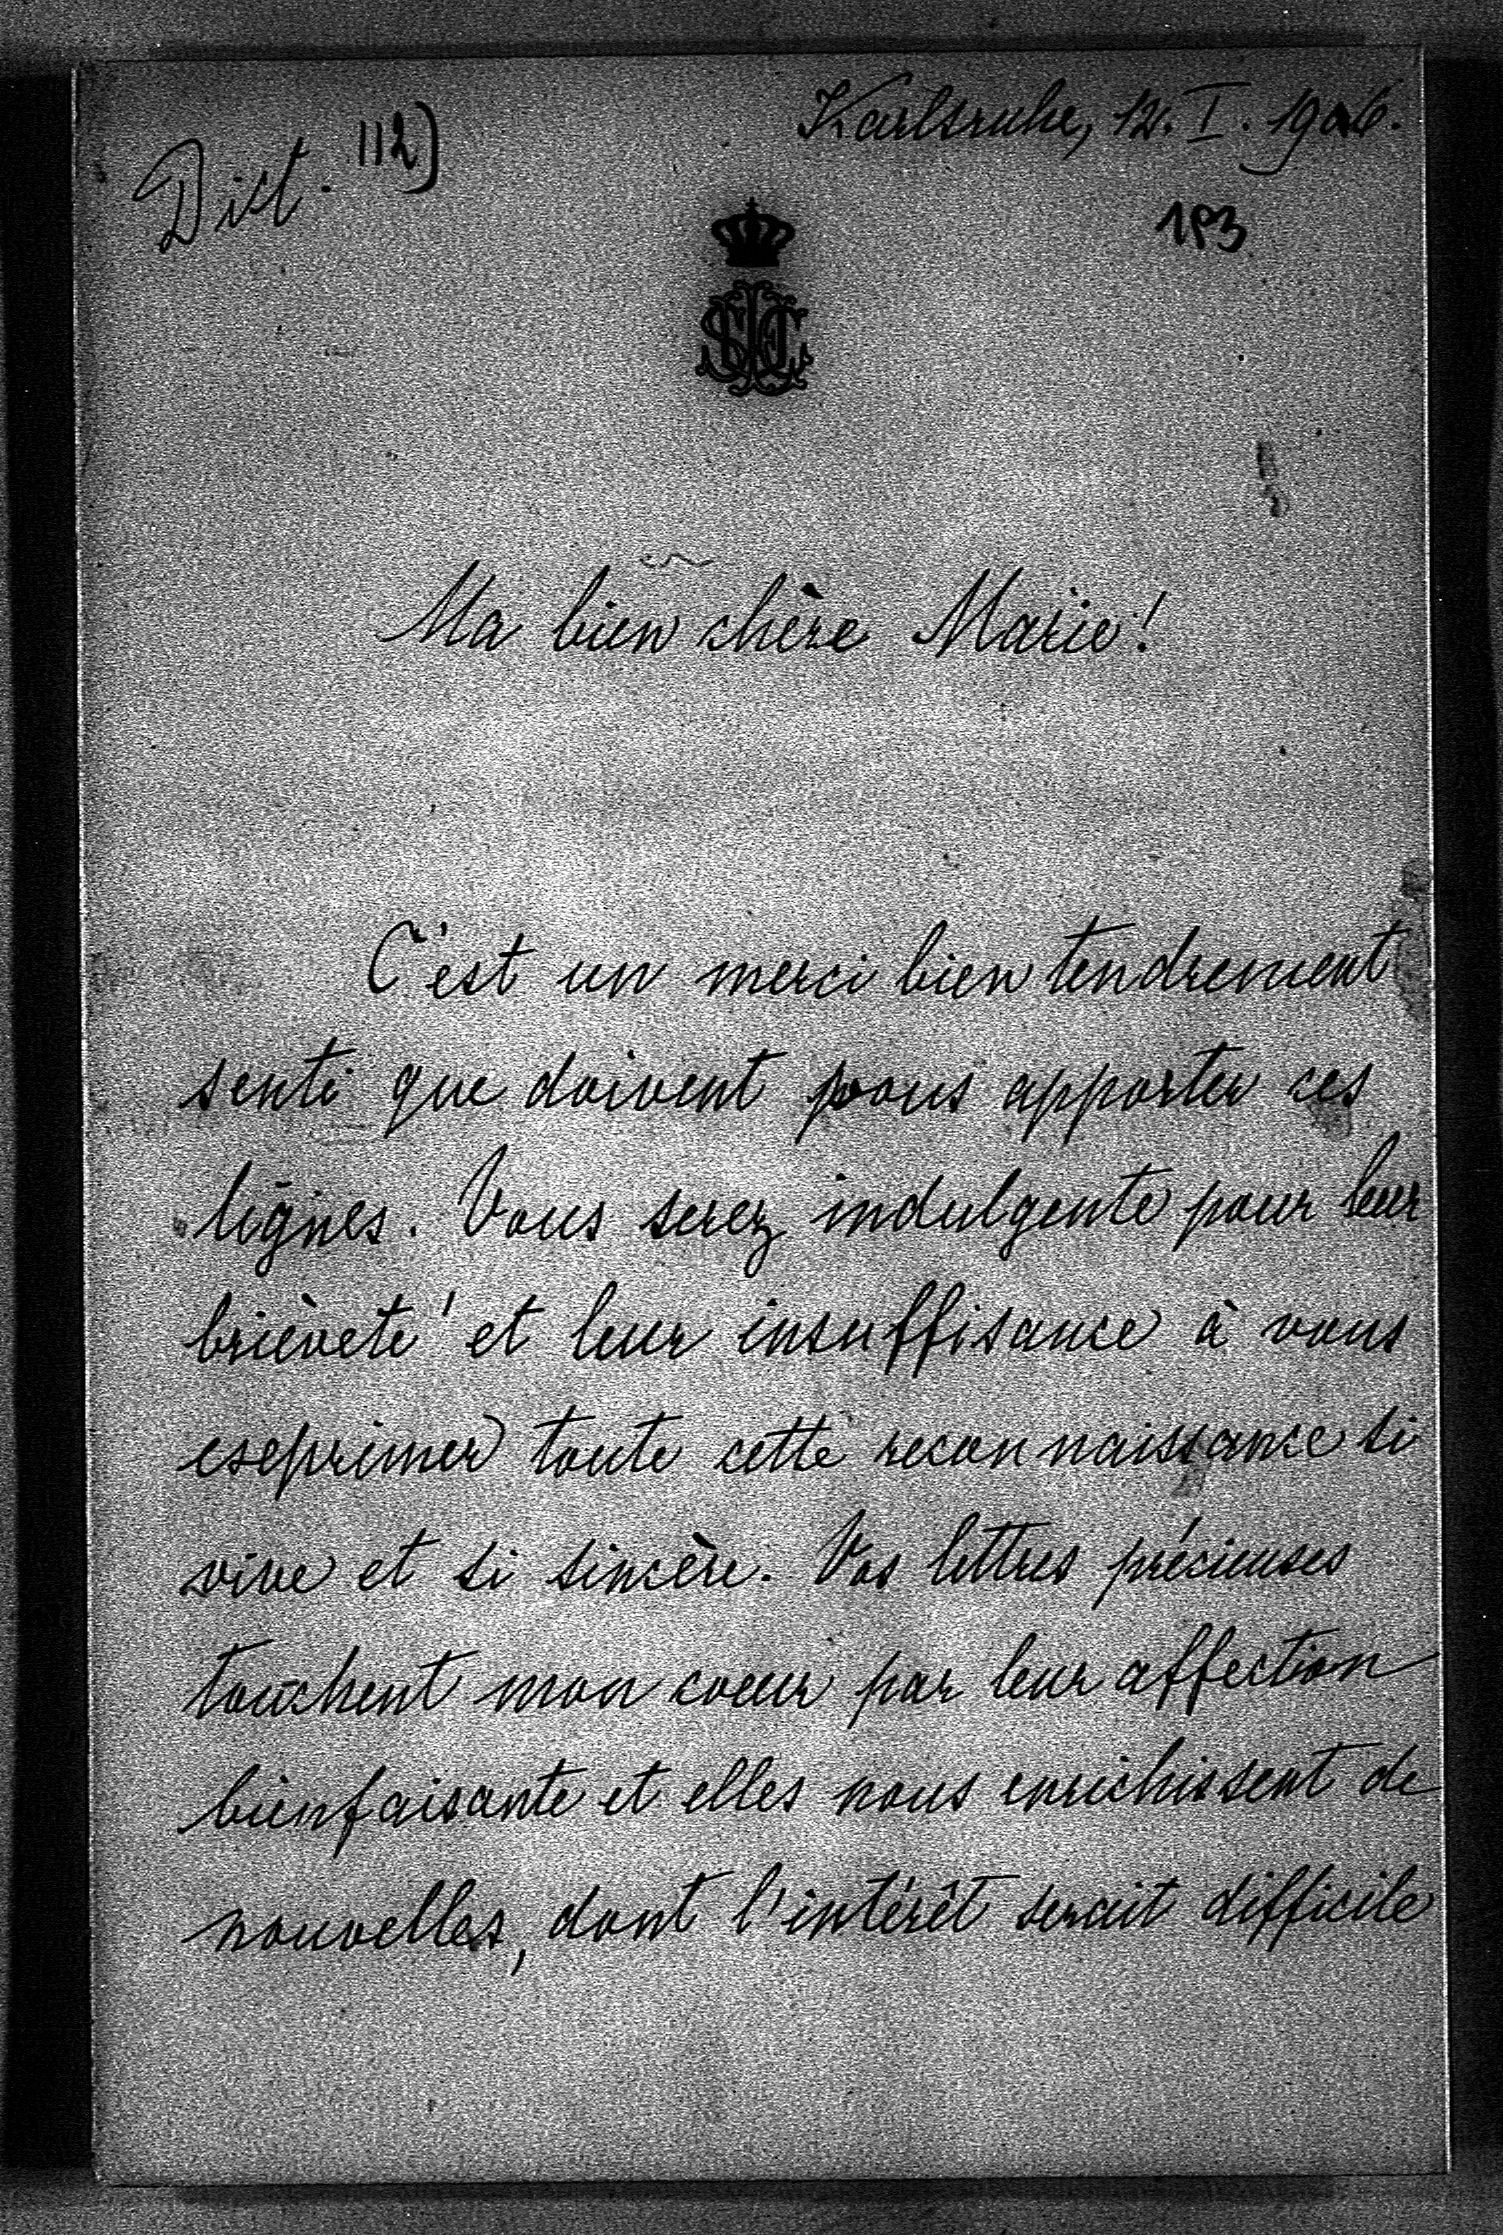 Karlsruhe, 12. I. 1906.
Dict. 112)
183
Ma bien chère Marie!
C'est un merci bien tendrement
senti que doivent vous apporter ces
lignes. Vous serez indulgente pour leur
brièveté et leur insuffisance à vous
exprimer toute cette reconnaissance si
vive et si sincère. Vos lettres précieuses
touchent mon coeur par leur affection
bienfaisante et elles nous enrichissent de
nouvelles, dont l'intérêt serait difficile